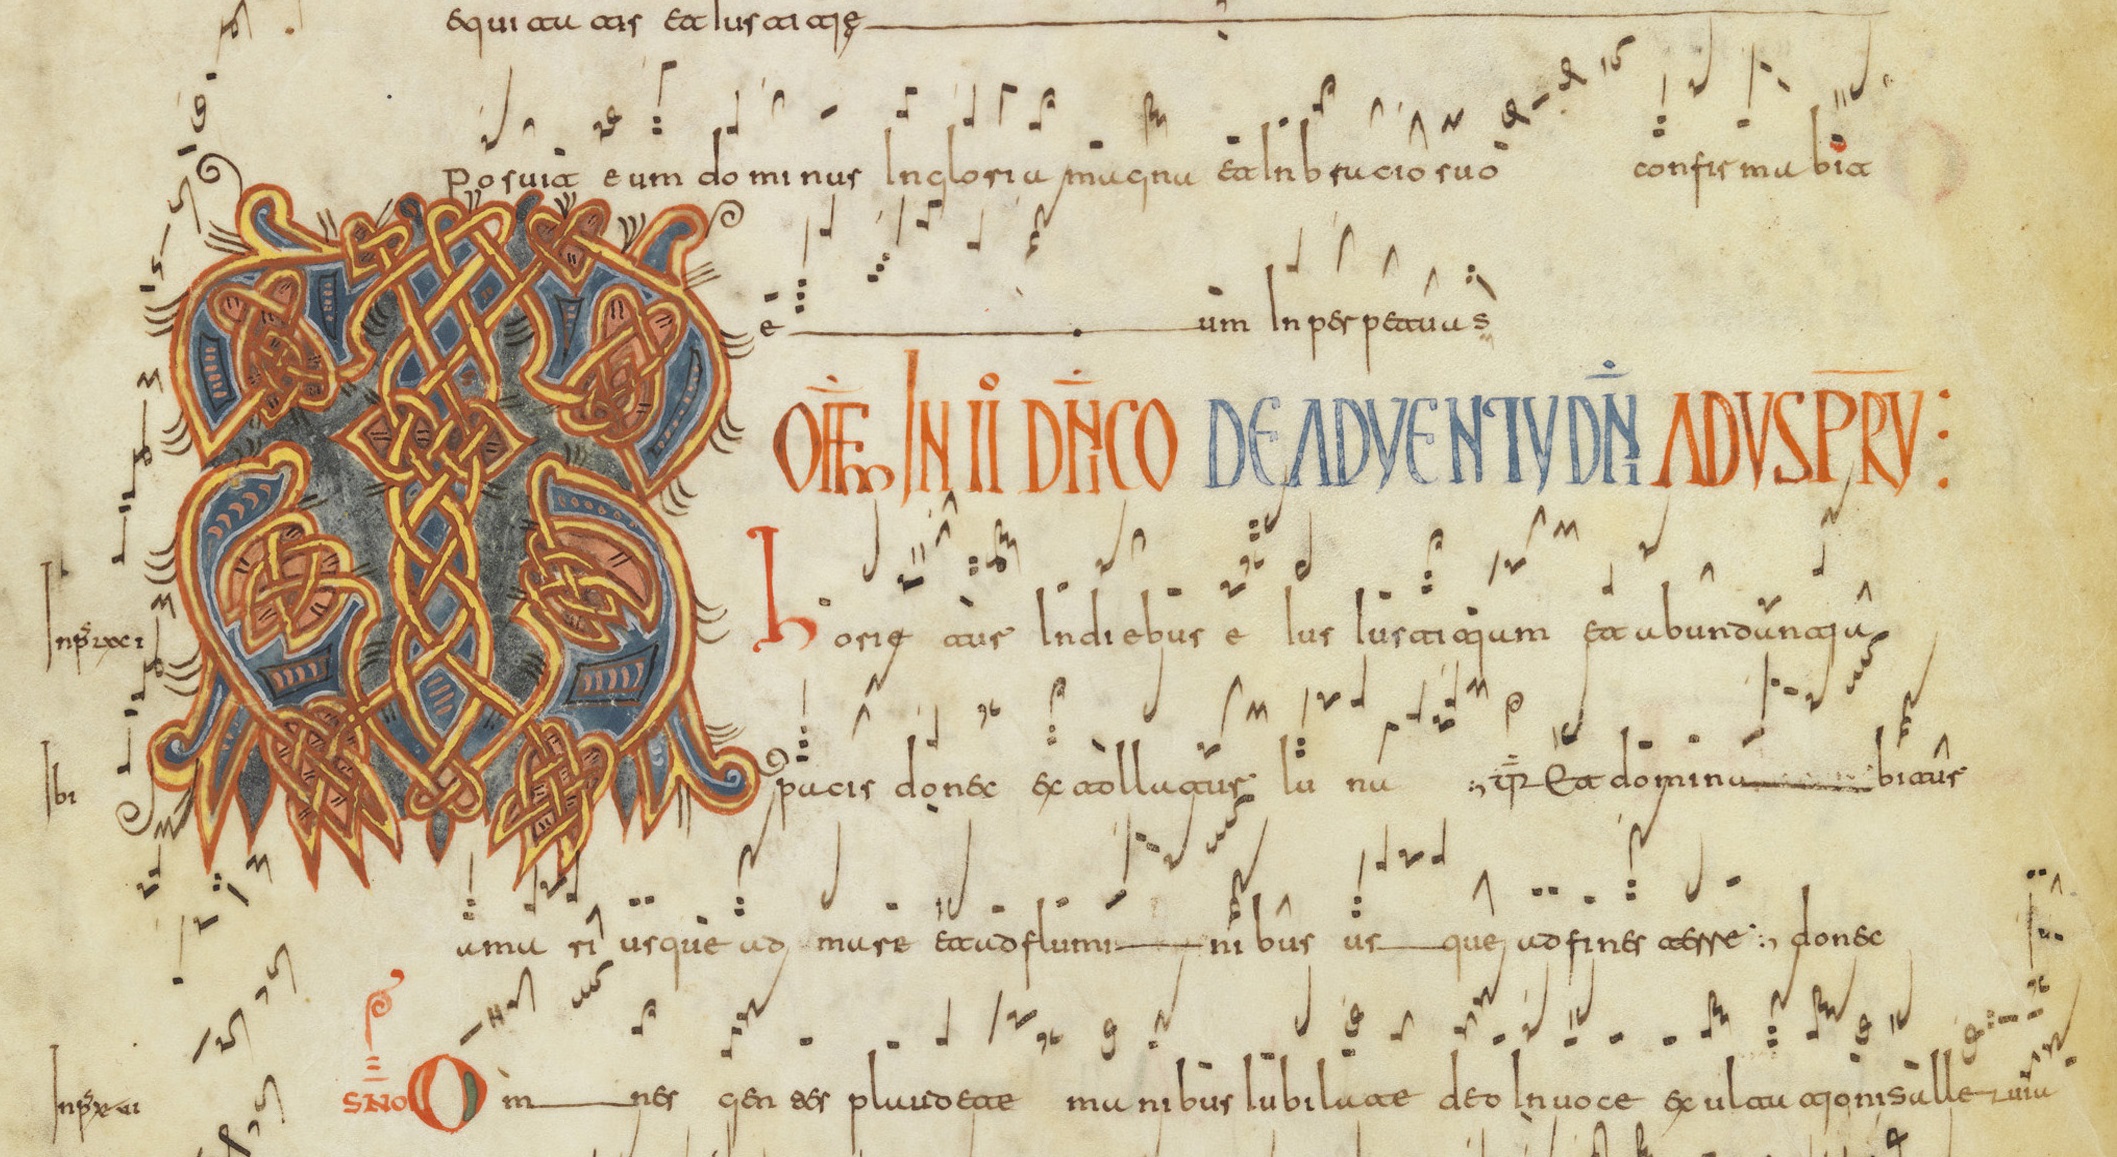 equitatis et iustitie
Posuit eum dominus In gloria magna et In bracio suo confirmabit
e um In perpetuus
OFFM IN II DNICO DE ADVENTU DNI AD VSPRU:
horie tur In diebus eius iustitiam et abundantia
pacis donec extollatur luna Et dominabitur
Ibi
a mari usque ad mare et ad flumi nibus us que ad fines terre donec
SNO Om nes gentes plaudete manibus Iubilate deo In voce exultationis alleluia